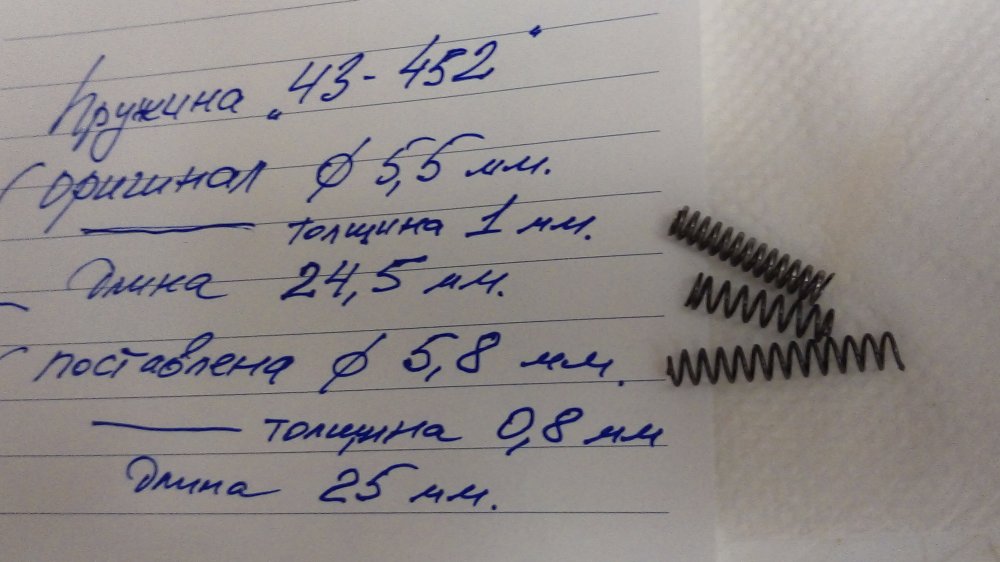 Пружина „43-452"
оригинал ϕ 5,5 мм.
толщина 1 мм.
Длина 24,5 мм.
поставлена ϕ 5,8 мм.
толщина 0,8 мм
Длина 25 мм.